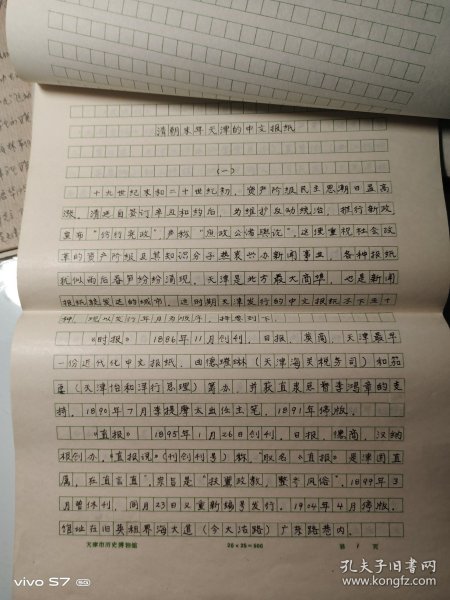 清朝末年天津的中文报纸
(一)
十九世纪末和二十世纪初，资产阶级民主思潮日益高
涨，清廷自签订辛丑和约后，为维护反动统治，推行新政
宣布“仿行宪政”，声称“庶政公诸舆论”，这理重视社会改
革的资产阶级及其知识分子热衷兴办新闻事业，各种报纸
犹似雨后春笋纷纷涌现，天津是北方最大商埠，也是新闻
报纸较发达的城市，这时期天津发行的中文报纸不下五十
种，现以发行年月为顺序，择要列下：
《时报》 1886年11月创刊，日报，英商，天津最早
一份近代化中文报纸，由德璀琳（天津海关税务司）和笳
臣（天津怡和洋行总理）筹办，并获直隶总督李鸿章的支
持，1890年7月李提摩太出任主笔，1891年停版。
《直报》 1895年1月26日创刊，日报，德商，汉纳
根创办，《直报说》（刊创刊号）称“取名《直报》是津固直
属，在直言直”，宗旨是“扶置政教，整齐风俗”，1899年3
月曾休刊，同月23日又重新编号发行，1904年4月停版，
馆址在旧英租界海大道（今大沽路）广东路巷内。
天津市历史博物馆
20×25＝500
第 1 页
vivo S7 5G
孔夫子旧书网
kongfz.com